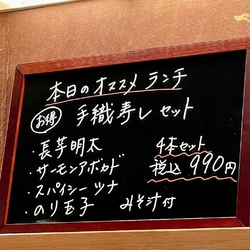 本日のオススメランチ
お得 手織寿しセット
・長芋明太
・サーモンアボカド
・スパイシーツナ
・のり玉子
4本セット
税込990円
みそ汁付